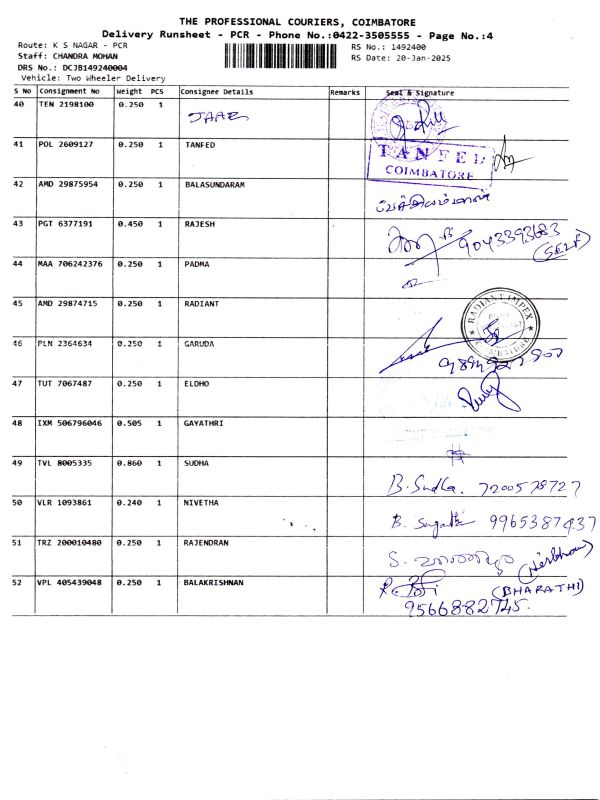 THE PROFESSIONAL COURIERS, COIMBATORE
Delivery Runsheet - PCR - Phone No.:0422-3505555 - Page No.:4
Route: K S NAGAR - PCR
RS No.: 1492400
Staff: CHANDRA MOHAN
RS Date: 20-Jan-2025
DRS No.: DCJB149240004
Vehicle: Two Wheeler Delivery
S No Consignment No Weight PCS Consignee Details Remarks Seal & Signature
40 TEN 2198100 0.250 1
41 POL 2609127 0.250 1 TANFED
TANFED
COIMBATORE
42 AMD 29875954 0.250 1 BALASUNDARAM
43 PGT 6377191 0.450 1 RAJESH
9043393683
(SELF)
44 MAA 706242376 0.250 1 PADMA
45 AMD 29874715 0.250 1 RADIANT
RADIANT IMPEX
COIMBATORE
46 PLN 2364634 0.250 1 GARUDA
47 TUT 7067487 0.250 1 ELDHO
48 IXM 506796046 0.505 1 GAYATHRI
49 TVL 8005335 0.860 1 SUDHA
B. Sudha. 7200578727
50 VLR 1093861 0.240 1 NIVETHA
B. Sugathi 9965387437
51 TRZ 200010480 0.250 1 RAJENDRAN
52 VPL 405439048 0.250 1 BALAKRISHNAN
(BHARATHI)
9566882745.